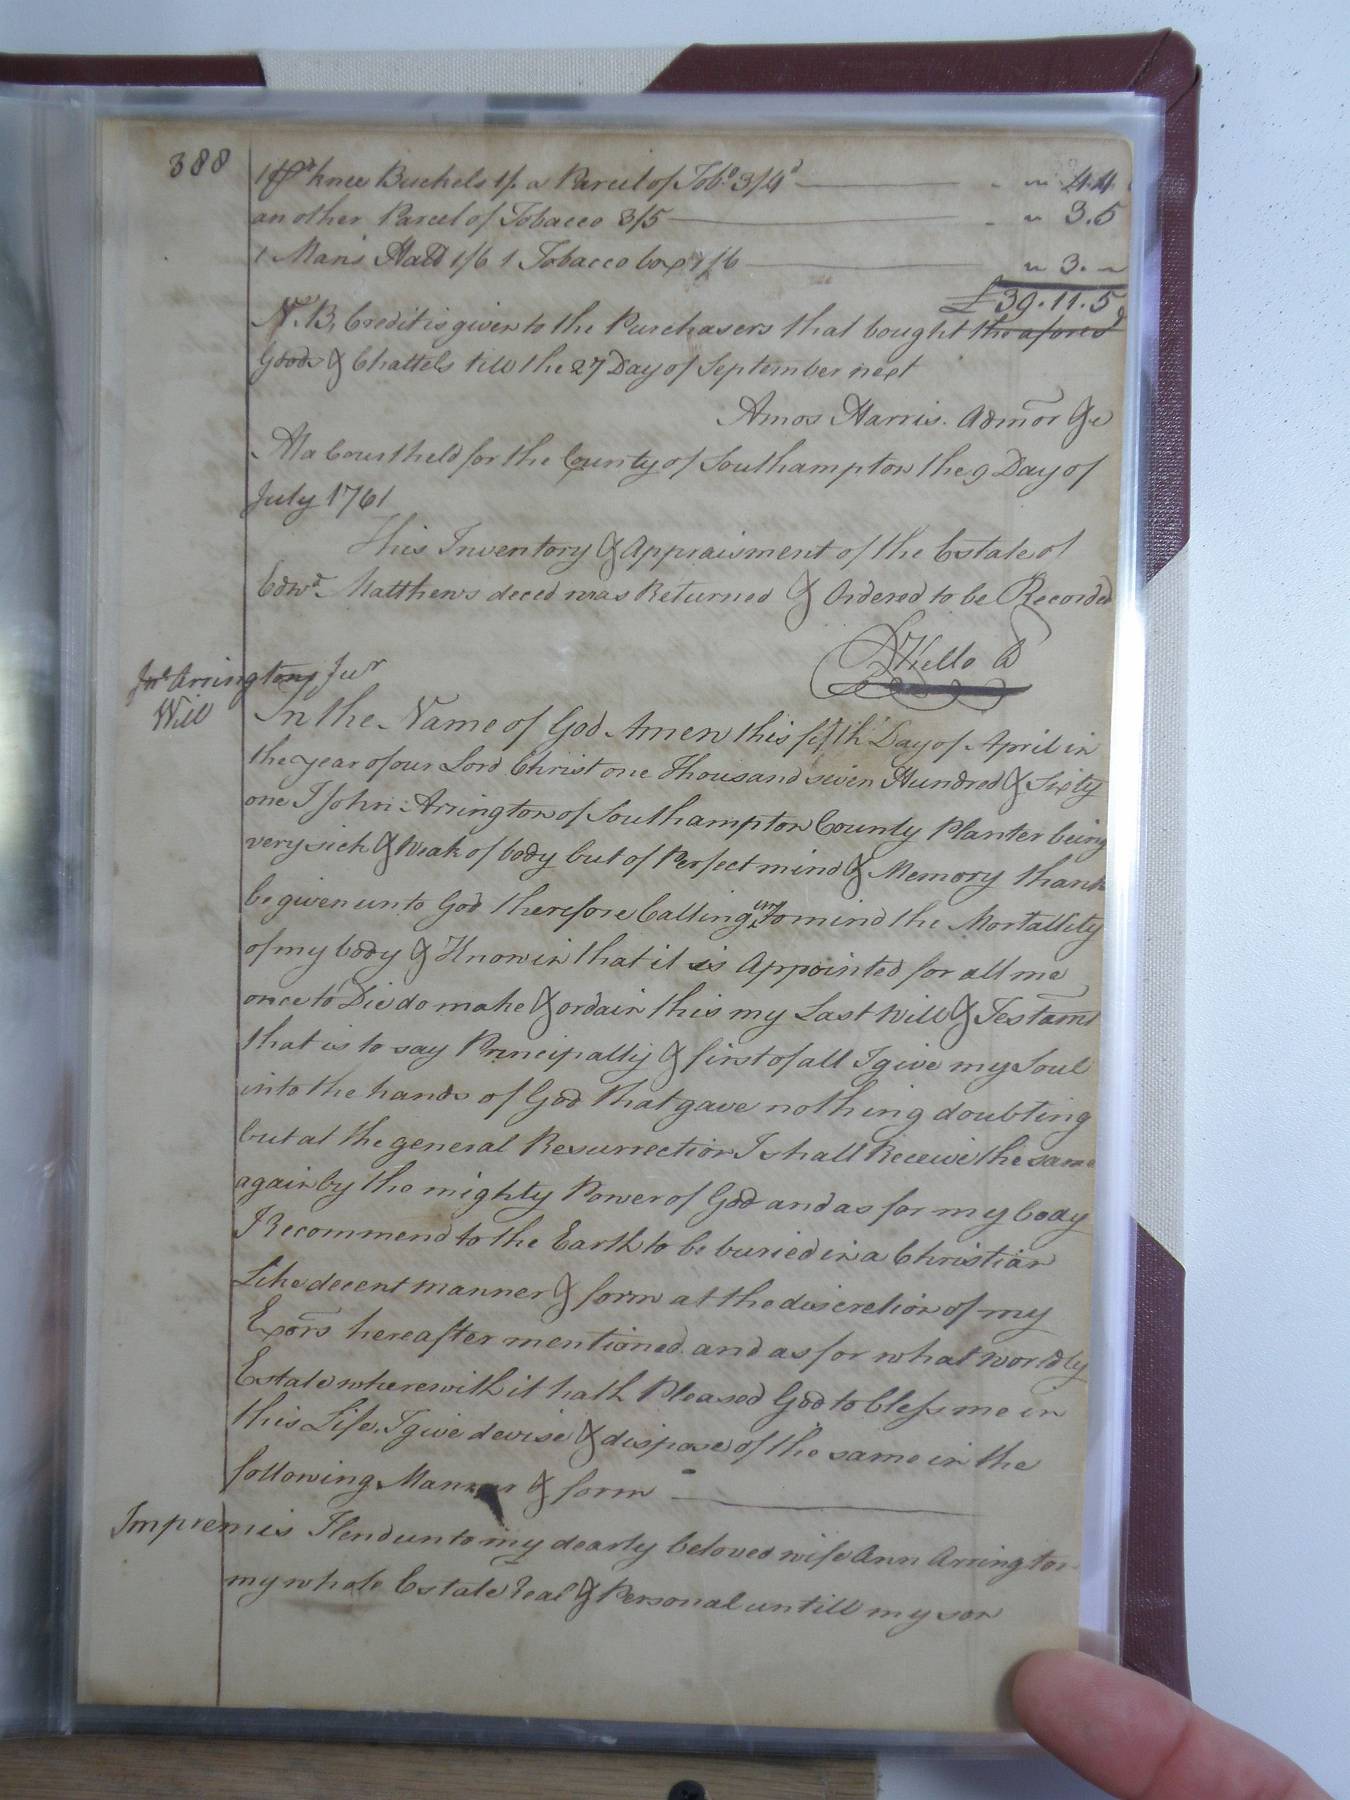 388
1 pr knee Buckels 1/. a Parcel of Tobo. 3/4d " 4.4
an other Parcel of Tobacco 3/5 " 3.5
1 Mans Hatt 1/6 1 Tobacco box 1/6 " 3. "
£39.11.5
N.B. Credit is given to the Purchasers that bought the aforesd
Goods & Chattels till the 27 Day of September next
Amos Harris. Admor &c
At a Court held for the County of Southampton the 9 Day of
July 1761
This Inventory & Appraisment of the Estate of
Edwd. Matthews deced was Returned & Ordered to be Recorded
Kello
Jno. Arringtons Junr
Will
In the Name of God Amen this fifth Day of April in
the year of our Lord Christ one Thousand seven Hundred & Sixty
one I John Arrington of Southampton County Planter being
very sick & Weak of body but of Perfect mind & Memory thank
be given unto God therefore Calling unto mind the Mortallity
of my body & Knowin that it is Appointed for all me
once to Die do make & ordain this my Last Will & Testamt
that is to say Principally & first of all I give my Soul
into the hands of God that gave nothing doubting
but at the general Resurrection I shall Receive the same
again by the mighty Power of God and as for my body
I Recommend to the Earth to be buried in a Christian
Like decent manner & form at the discretion of my
Exors hereafter mentioned and as for what worldly
Estate wherewith it hath Pleased God to bless me in
this Life, I give devise & dispose of the same in the
following Manner & form
Impremis I lend unto my dearly beloved wife Ann Arrington
my whole Estate Real & Personal untill my son